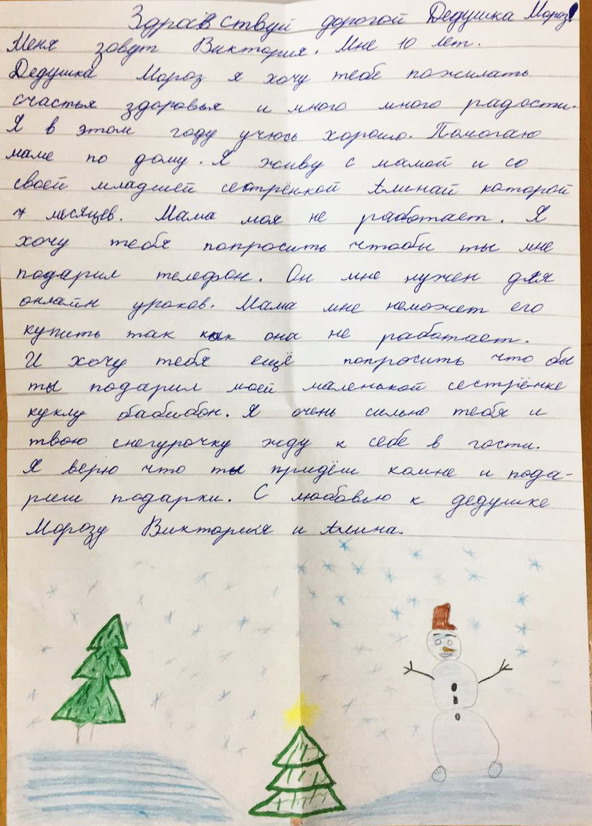 Здравствуй дорогой Дедушка Мороз!
Меня зовут Виктория. Мне 10 лет.
Дедушка Мороз я хочу тебе пожилать
счастья здоровья и много много радости.
Я в этом году учюсь хорошо. Помогаю
маме по дому. Я живу с мамой и со
своей младшей сестрёнкой Аминай которой
7 месяцев. Мама моя не работает. Я
хочу тебя попросить чтобы ты мне
подарил телефон. Он мне нужен для
онлайн уроков. Мама мне неможет его
купить так как она не работает.
И хочу тебя ещё попросить что бы
ты подарил моей маленькой сестрёнке
куклу бабибон. Я очень сильно тебя и
твою снегурочку жду к себе в гости.
Я верю что ты придёш комне и пода-
риш подарки. С любовью к дедушке
Морозу Виктория и Амина.